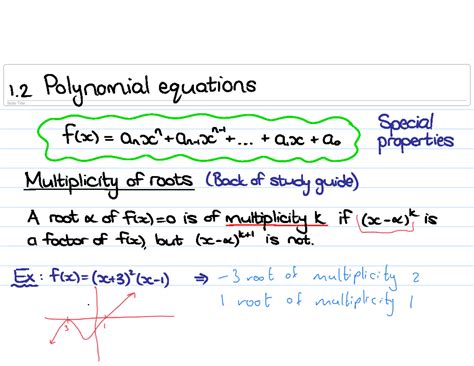 1.2 Polynomial equations
f(x) = aₙxⁿ + aₙ₋₁xⁿ⁻¹ + ... + a₁x + a₀
Special
properties
Multiplicity of roots (Back of study guide)
A root α of f(x)=0 is of multiplicity k if (x-α)ᵏ is
a factor of f(x), but (x-α)ᵏ⁺¹ is not.
Ex: f(x)=(x+3)²(x-1) ⇒ -3 root of multiplicity 2
1 root of multiplicity 1
3 1